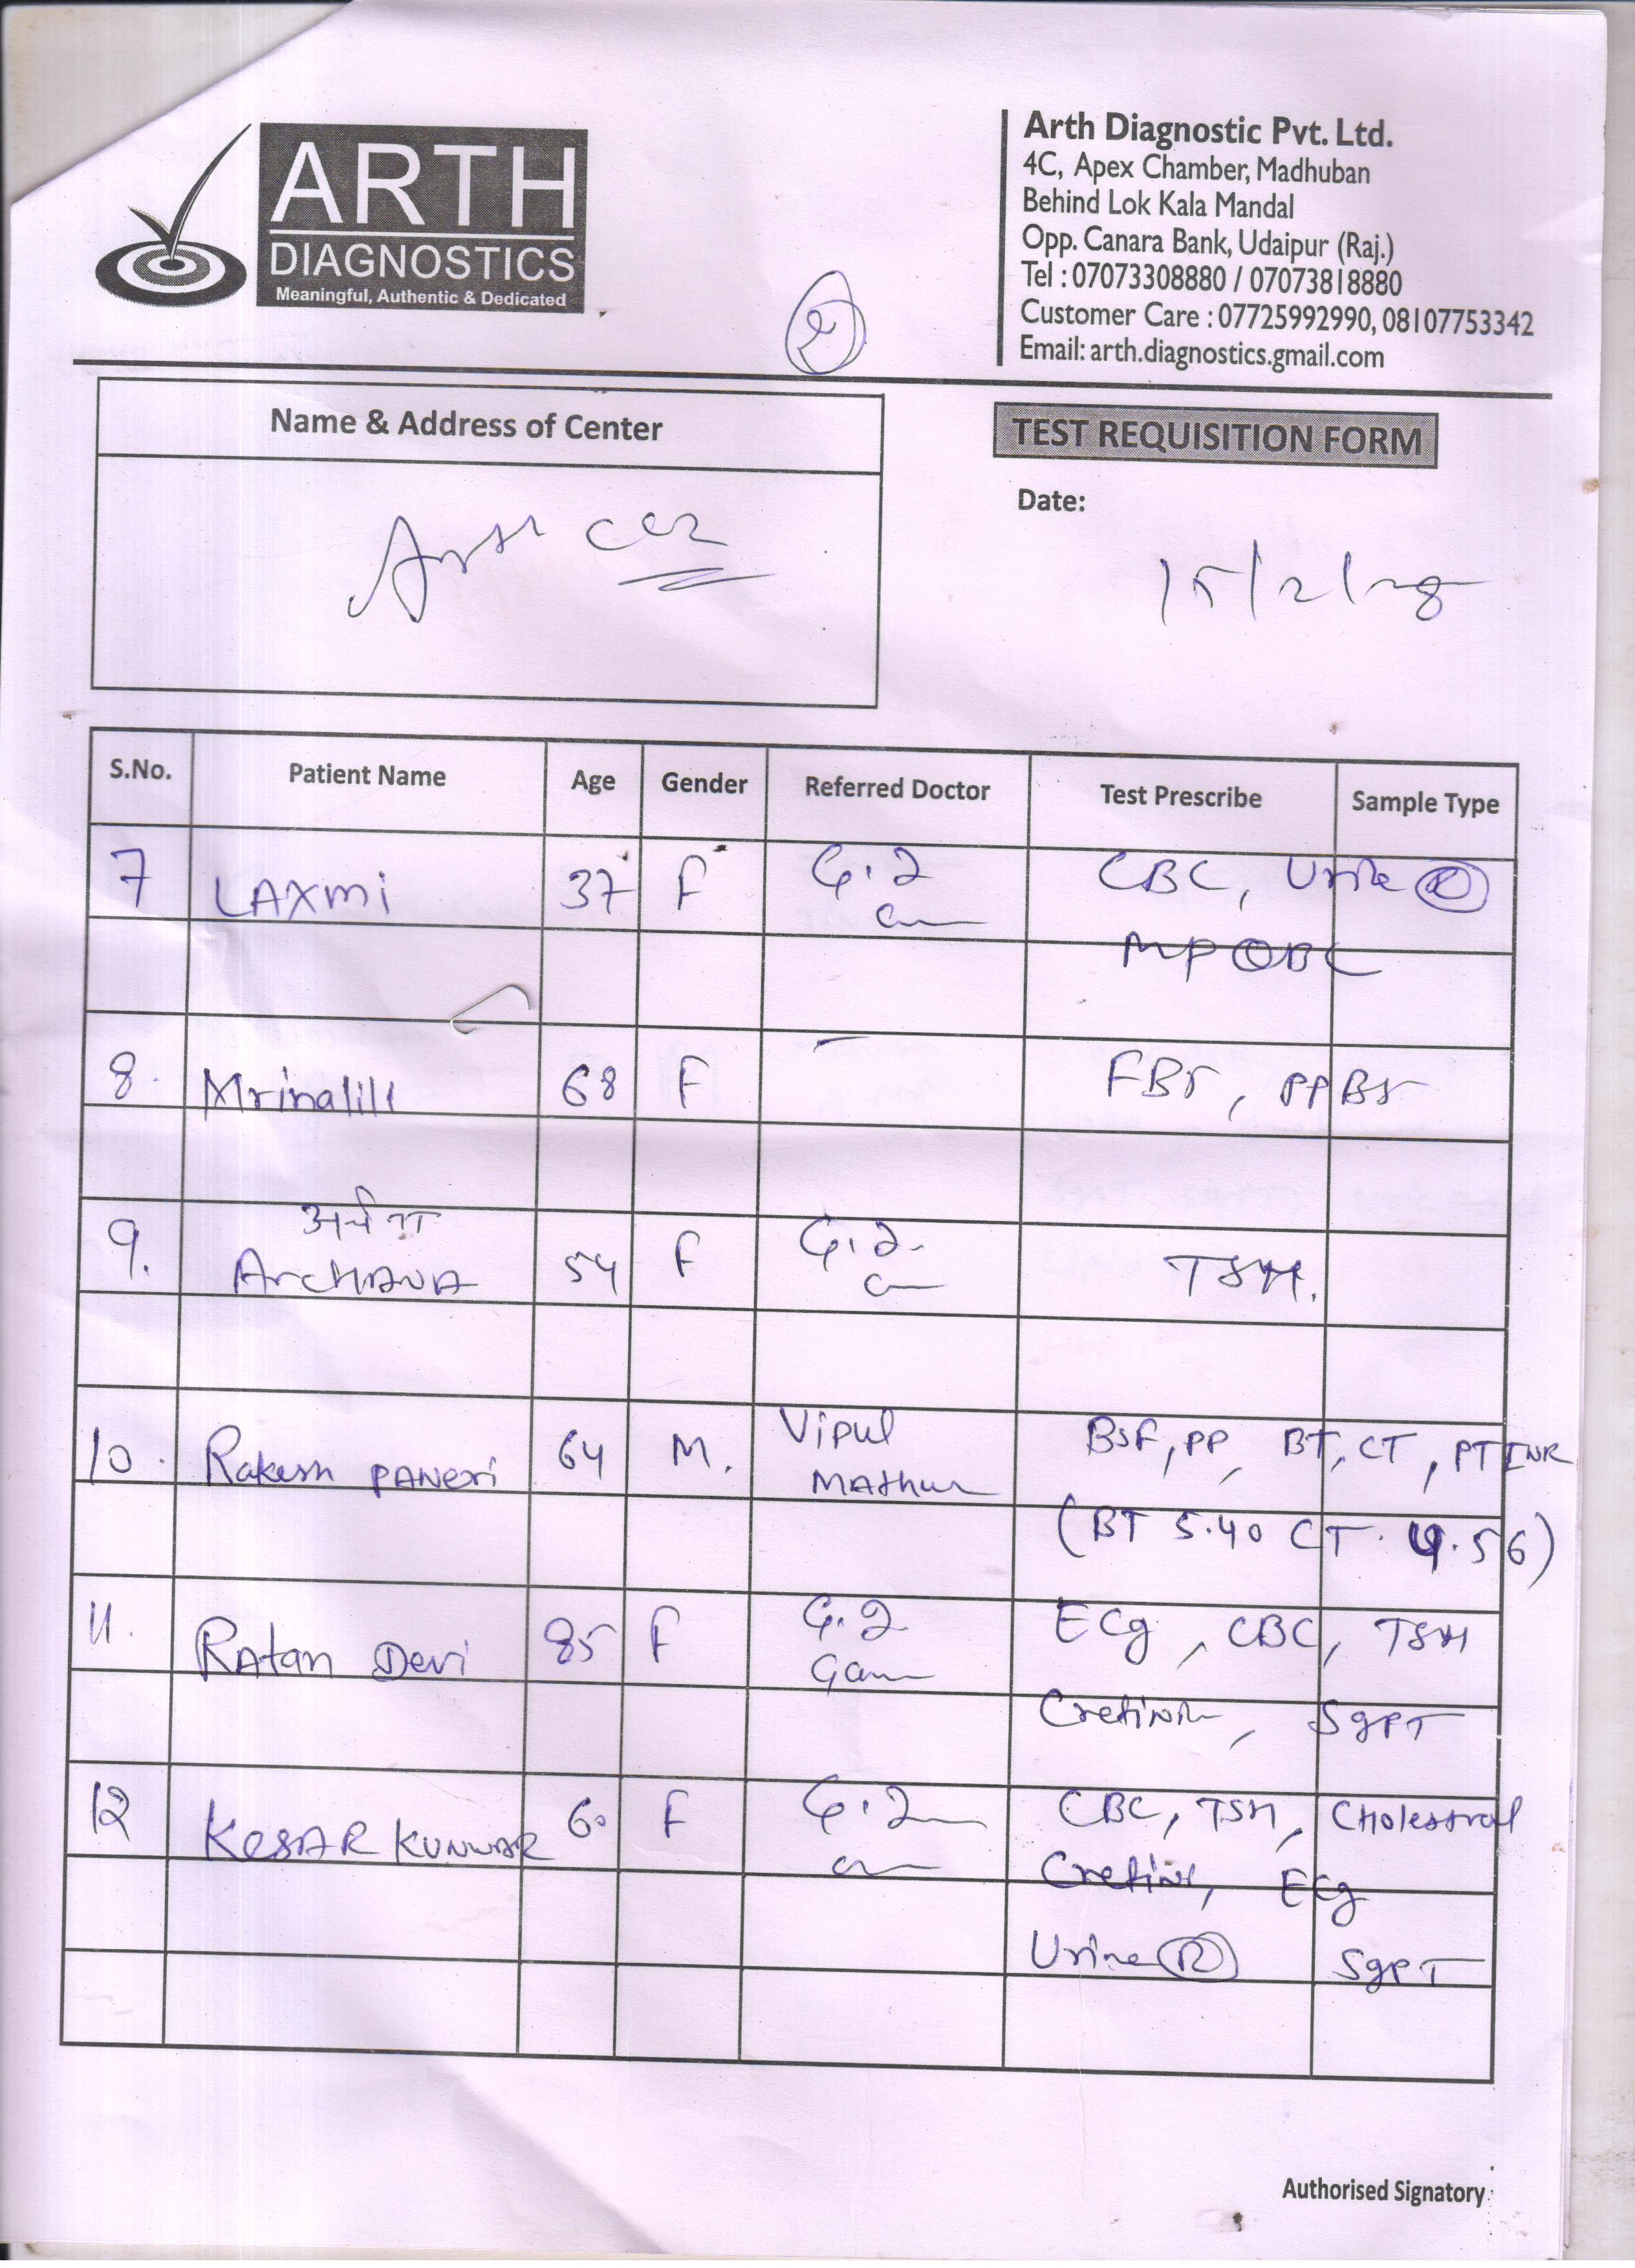 ARTH
DIAGNOSTICS
Meaningful, Authentic & Dedicated
Arth Diagnostic Pvt. Ltd.
4C, Apex Chamber, Madhuban
Behind Lok Kala Mandal
Opp. Canara Bank, Udaipur (Raj.)
Tel : 07073308880 / 07073818880
Customer Care : 07725992990, 08107753342
Email: arth.diagnostics.gmail.com
2
Name & Address of Center
TEST REQUISITION FORM
Date:
15/2/
S.No. Patient Name Age Gender Referred Doctor Test Prescribe Sample Type
7 LAXMI 37 F G.2 CBC, Urine R
MP QBC
8. Mrinalili 68 F - FBS, PPBS
अर्चना
9. ArcHANA 54 F G.2. TSH.
10. Rakesh PANeri 64 M. Vipul BSF, PP, BT, CT, PTINR
MAthur (BT 5.40 CT. 4.56)
11. RAtan Devi 85 F G.2 ECg, CBC, TSH
SgPT
12 KeSAR KUNWAR 60 F G.2 CBC, TSH, CHolestrol
ECg
Urine R SgPT
Authorised Signatory